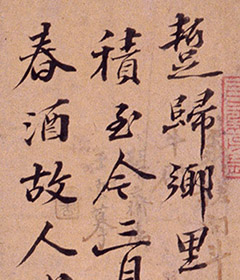 蹔歸鄉里
積至今三月
春酒故人